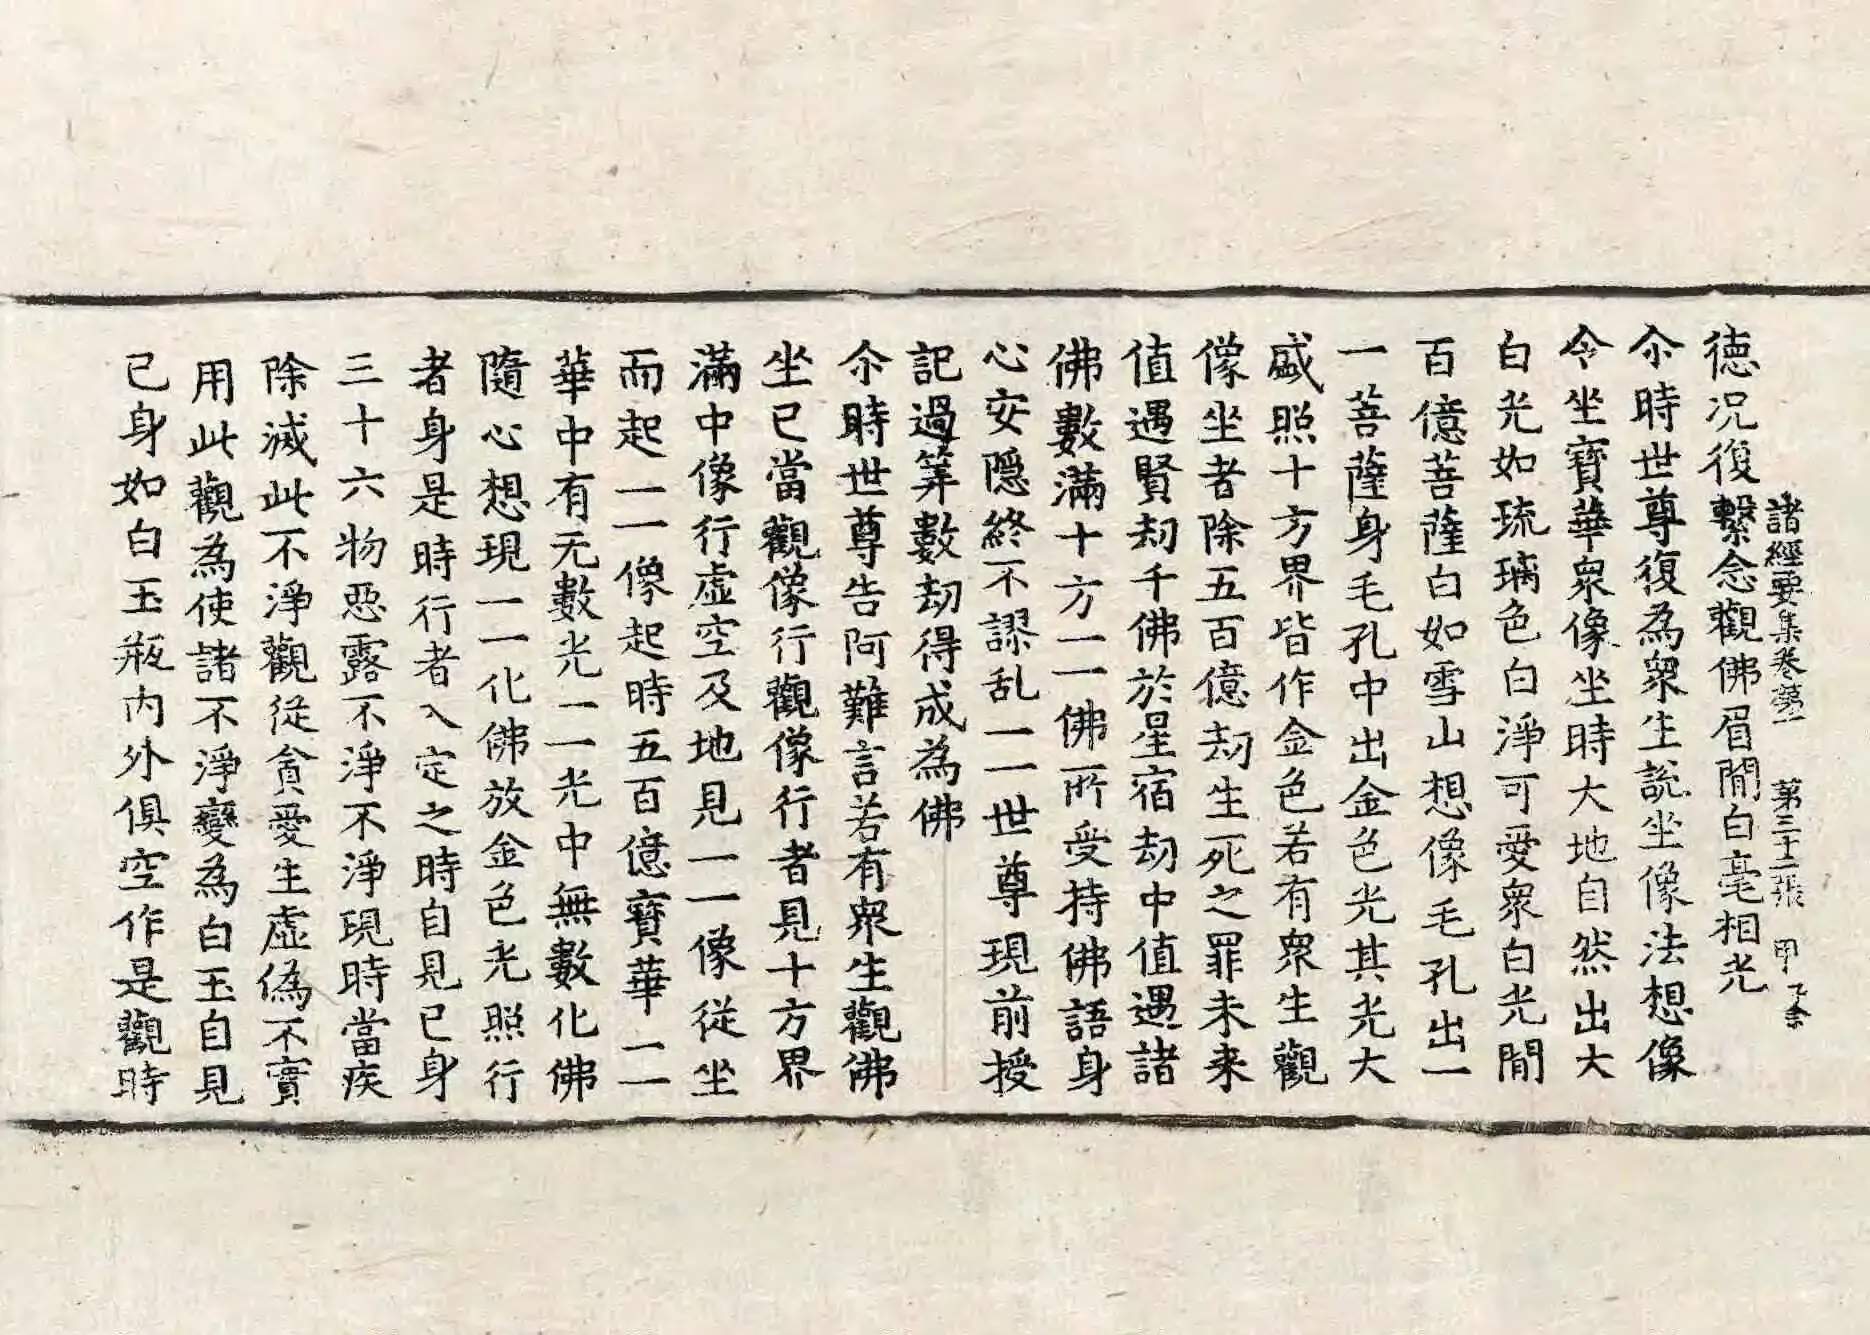 德況復繫念觀佛眉間白毫相光
諸經要集卷第一　第三十二張　甲
尒時世尊復為衆生說坐像法想像
令坐寶華衆像坐時大地自然出大
白光如琉璃色白淨可愛衆白光間
百億菩薩白如雪山想像毛孔出一
一菩薩身毛孔中出金色光其光大
盛照十方界皆作金色若有衆生觀
像坐者除五百億劫生死之罪未来
值遇賢劫千佛於星宿劫中值遇諸
佛數滿十方一一佛所受持佛語身
心安隱終不謬乱一一世尊現前授
記過筭數劫得成為佛
尒時世尊告阿難言若有衆生觀佛
坐已當觀像行觀像行者見十方界
滿中像行虛空及地見一一像從坐
而起一一像起時五百億寶華一一
華中有无數光一一光中無數化佛
隨心想現一一化佛放金色光照行
者身是時行者入定之時自見已身
三十六物惡露不淨不淨現時當疾
除滅此不淨觀從貪愛生虛偽不實
用此觀為使諸不淨變為白玉自見
已身如白玉瓶内外俱空作是觀時